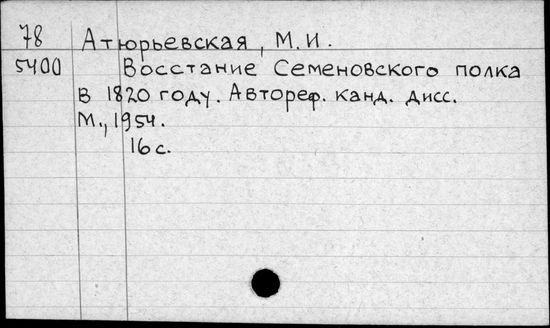 78 Атюрьевская, М.И.
5400 Восстание Семеновского полка
в 1820 году. Автореф. канд. дисс.
М., 1954.
16 с.